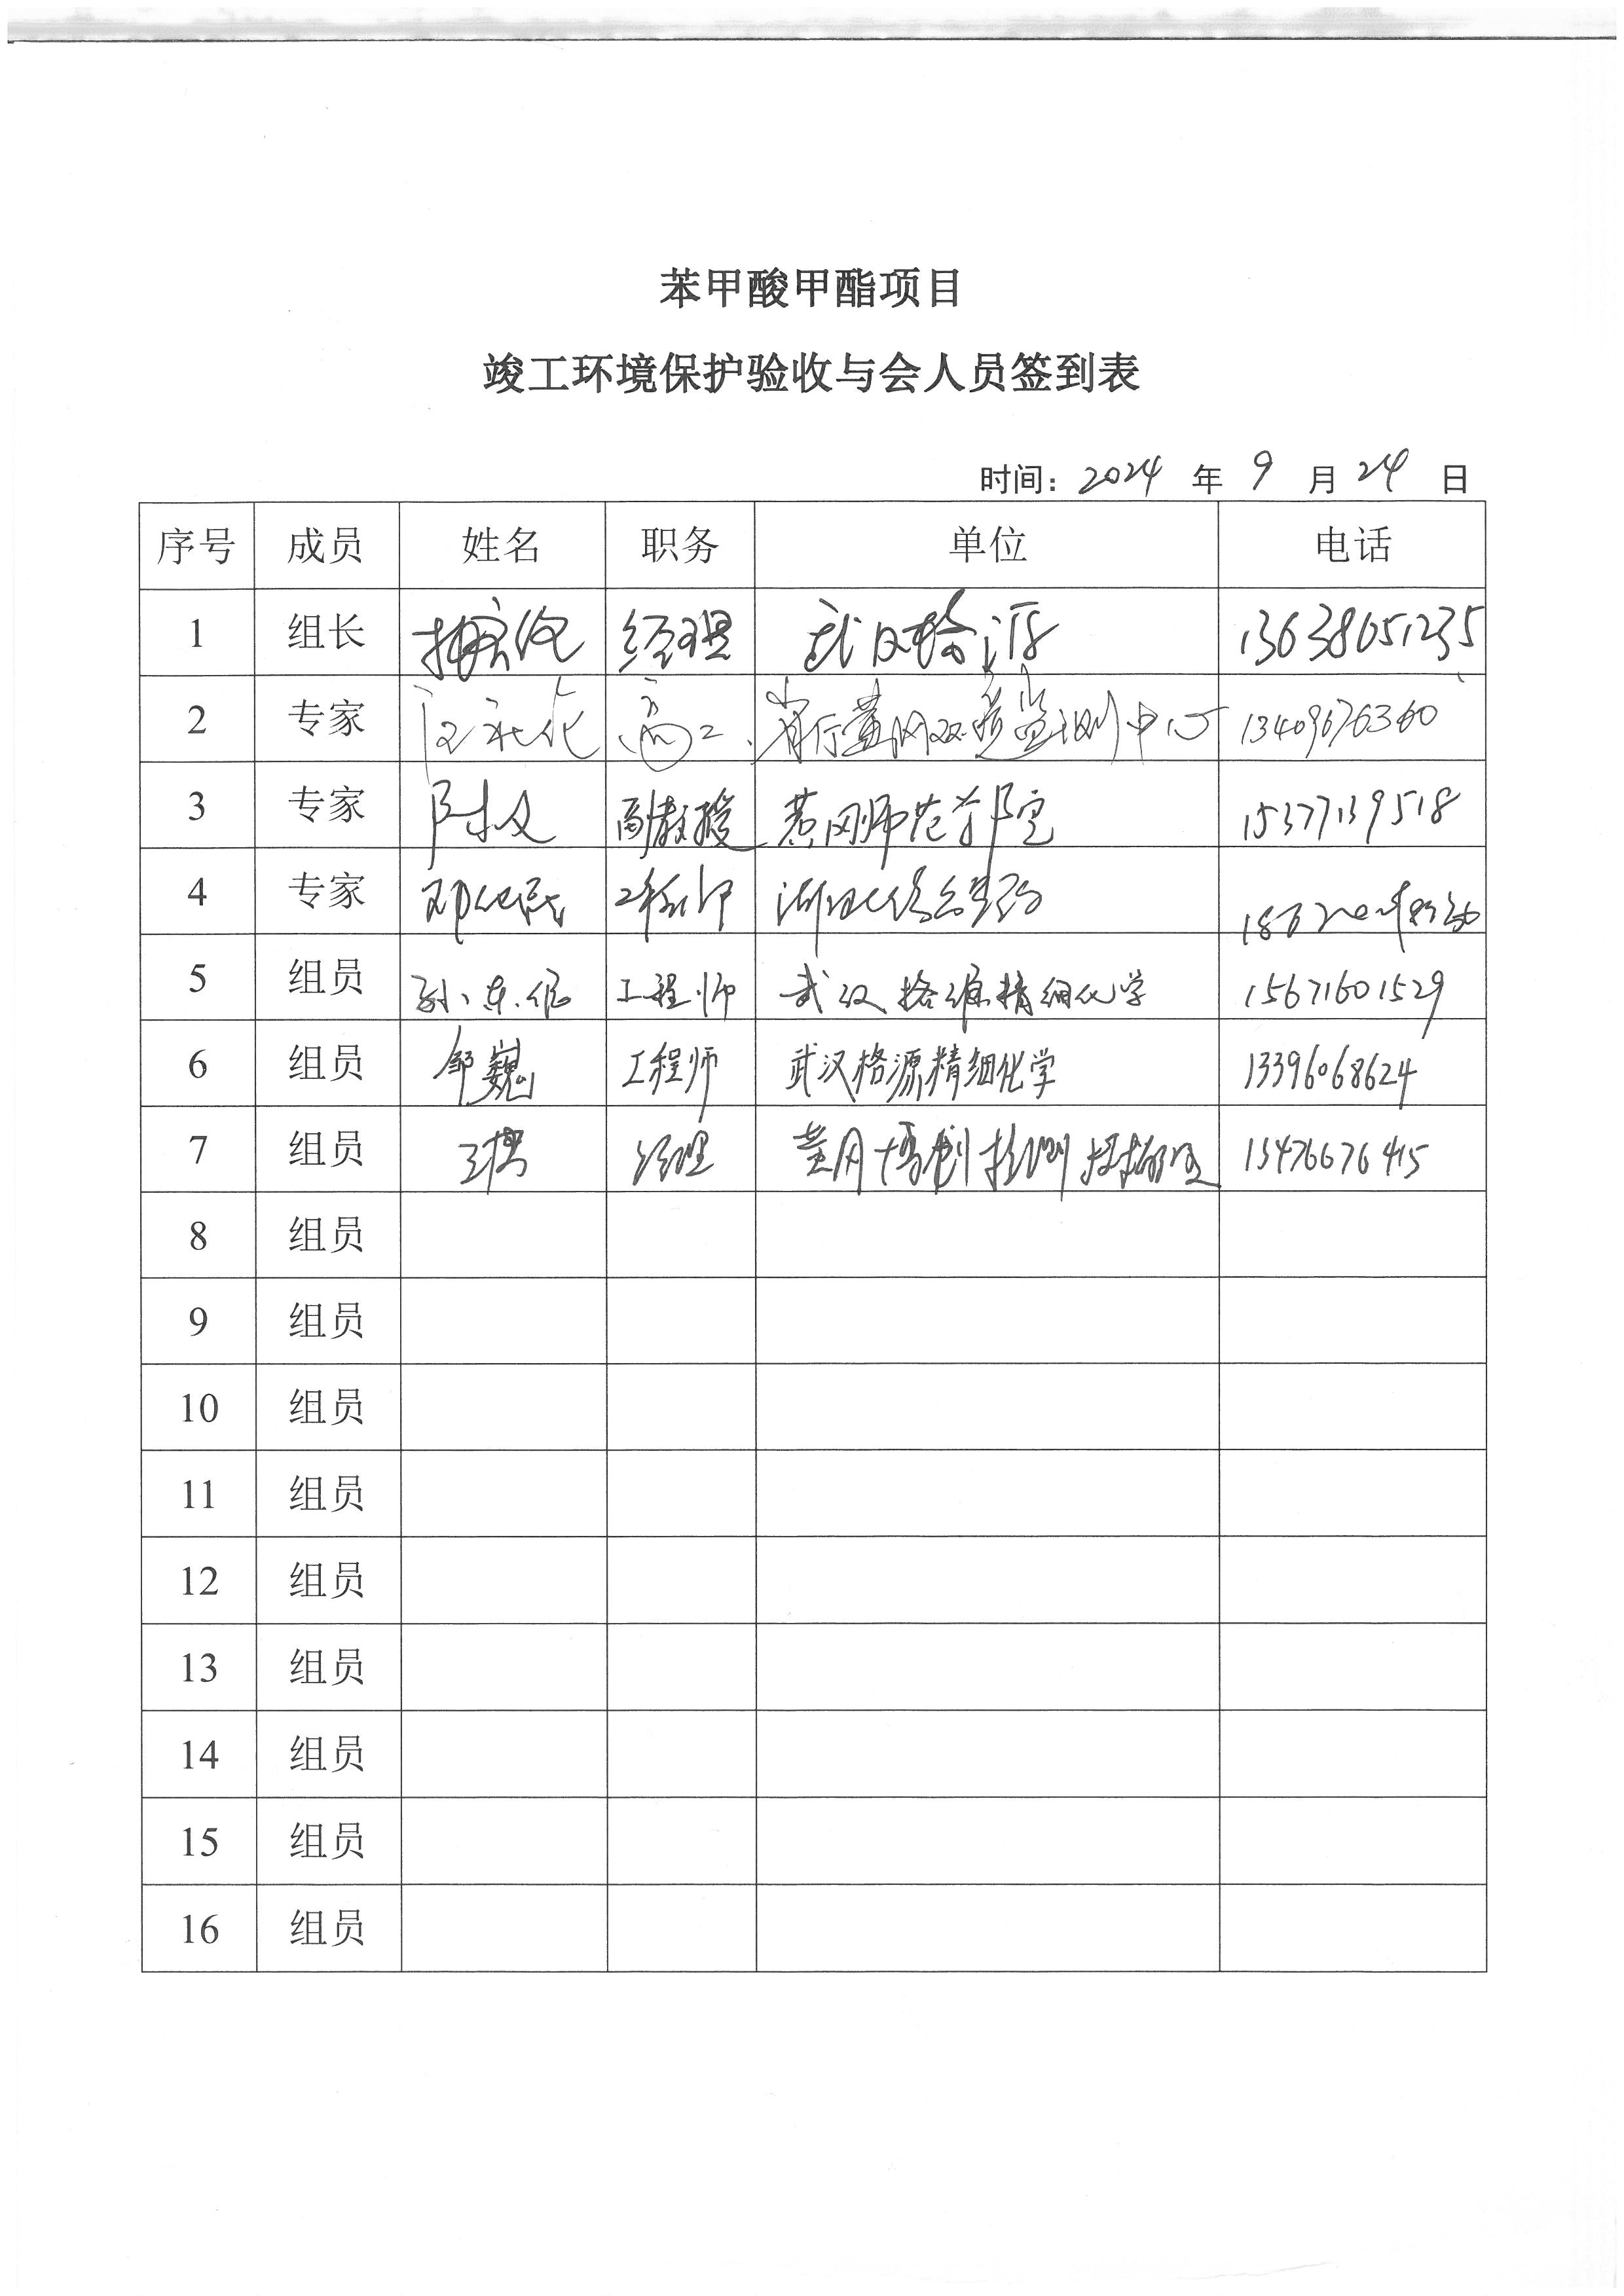 苯甲酸甲酯项目
竣工环境保护验收与会人员签到表
时间：2024 年 9 月 24 日
序号 成员 姓名 职务 单位 电话
1 组长 经理 武汉格源 13638651235
2 专家 高工 监测中心 13409676360
3 专家 陈 副教授 黄冈师范学院 15377139518
4 专家 邓 工程师 湖北
5 组员 孙东 工程师 武汉格源精细化学 15671601529
6 组员 邹巍 工程师 武汉格源精细化学 13396068624
7 组员 王 经理 黄冈博创检测 13476676415
8 组员
9 组员
10 组员
11 组员
12 组员
13 组员
14 组员
15 组员
16 组员